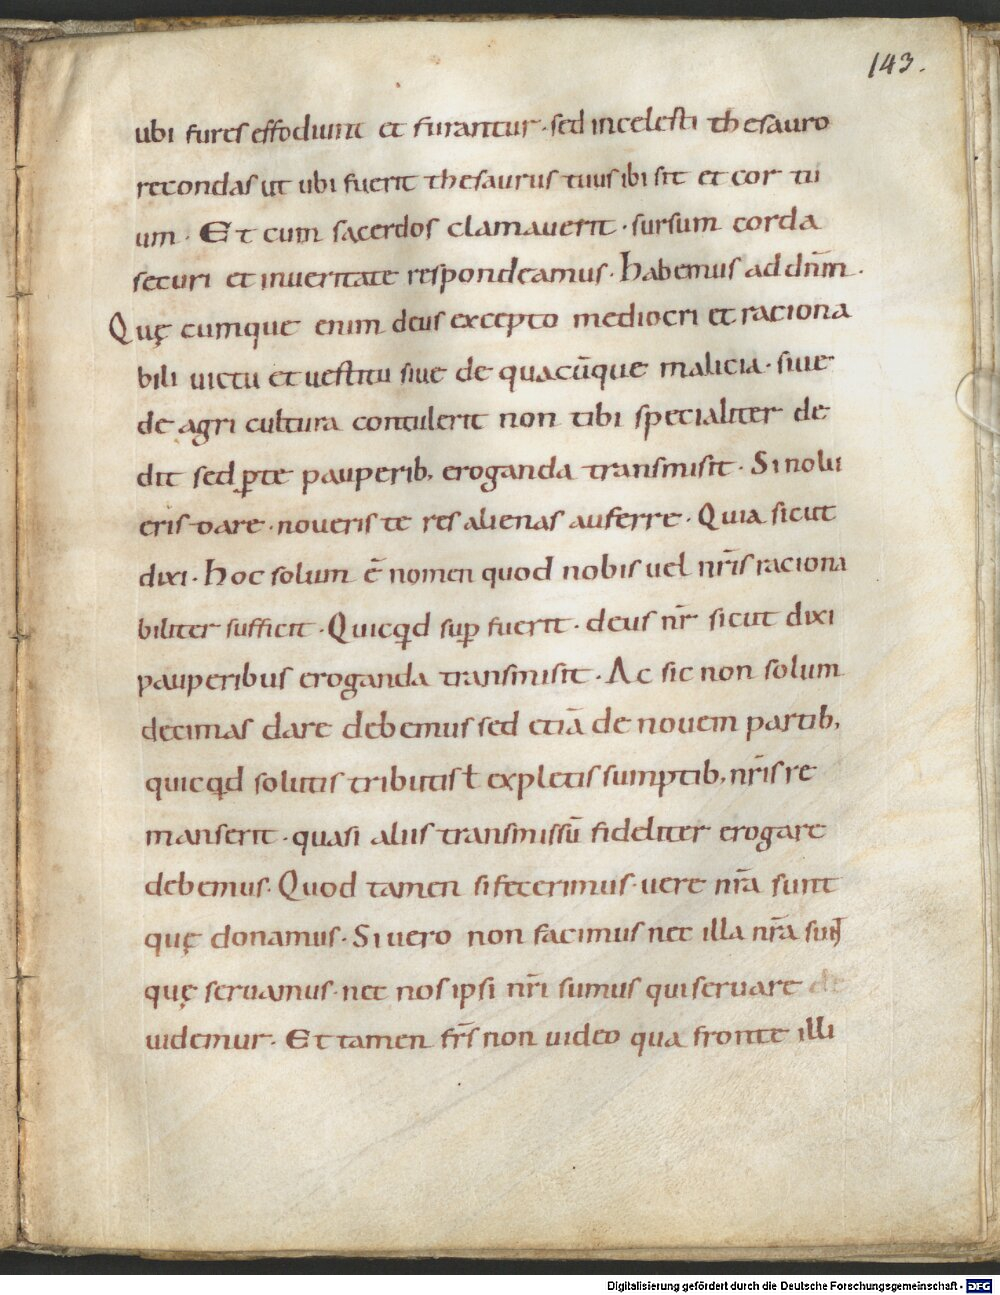 143.
ubi fures effodiunt et furantur · sed incelesti thesauro
recondas ut ubi fuerit thesaurus tuus ibi sit et cor tu
um · Et cum sacerdos clamauerit · sursum corda
securi et inueritate respondeamus · habemus ad dn̄m ·
Quę cumque enim deus excepto mediocri et raciona
bili uictu et uestitu siue de quacūque malicia · siue
de agri cultura contulerit non tibi specialiter de
dit sed ꝑte pauperib; eroganda transmisit · Si nolu
eris dare · noueris te res alienas auferre · Quia sicut
dixi · hoc solum ē nomen quod nobis uel nr̄is raciona
biliter sufficit · Quicqd suꝑ fuerit · deus nr̄ sicut dixi
pauperibus eroganda transmisit · Ac sic non solum
decimas dare debemus sed etiā de nouem partib;
quicqd solutis tributis ł expletis sumptib; nr̄is re
manserit · quasi aliis transmissū fideliter erogare
debemus · Quod tamen si fecerimus · uere nr̄a sunt
quę donamus · Si uero non facimus nec illa nr̄a sunt
quę seruamus · nec nos ipsi nr̄i sumus qui seruare
uidemur · Et tamen fr̄s non uideo qua fronte illi
Digitalisierung gefördert durch die Deutsche Forschungsgemeinschaft - DFG